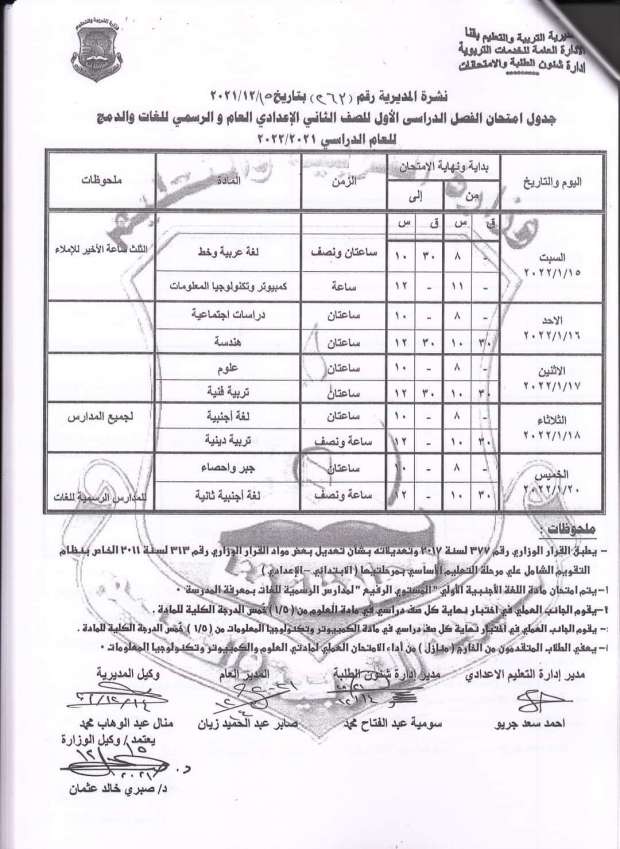 مديرية التربية والتعليم بقنا
الإدارة العامة للخدمات التربوية
إدارة شئون الطلبة والامتحانات
نشرة المديرية رقم (٢٦٢) بتاريخ ٢٠٢١/١٢/١٥
جدول امتحان الفصل الدراسى الأول للصف الثاني الإعدادي العام و الرسمي للغات والدمج
للعام الدراسي ٢٠٢٢/٢٠٢١
اليوم والتاريخ | بداية ونهاية الامتحان | الزمن | المادة | ملحوظات
من | إلى
ق | س | ق | س
السبت ٢٠٢٢/١/١٥ | - | ٨ | ٣٠ | ١٠ | ساعتان ونصف | لغة عربية وخط | الثلث ساعة الأخير للإملاء
- | ١١ | - | ١٢ | ساعة | كمبيوتر وتكنولوجيا المعلومات
الاحد ٢٠٢٢/١/١٦ | - | ٨ | - | ١٠ | ساعتان | دراسات اجتماعية
٣٠ | ١٠ | ٣٠ | ١٢ | ساعتان | هندسة
الاثنين ٢٠٢٢/١/١٧ | - | ٨ | - | ١٠ | ساعتان | علوم
٣٠ | ١٠ | ٣٠ | ١٢ | ساعتان | تربية فنية
الثلاثاء ٢٠٢٢/١/١٨ | - | ٨ | - | ١٠ | ساعتان | لغة أجنبية | لجميع المدارس
٣٠ | ١٠ | - | ١٢ | ساعة ونصف | تربية دينية
الخميس ٢٠٢٢/١/٢٠ | - | ٨ | - | ١٠ | ساعتان | جبر واحصاء
٣٠ | ١٠ | - | ١٢ | ساعة ونصف | لغة أجنبية ثانية | للمدارس الرسمية للغات
ملحوظات :
- يطبق القرار الوزاري رقم ٣٧٧ لسنة ٢٠١٧ وتعديلاته بشأن تعديل بعض مواد القرار الوزاري رقم ٣١٣ لسنة ٢٠١١ الخاص بنظام
التقويم الشامل علي مرحلة التعليم الأساسي بمرحلتيها ( الابتدائي – الإعدادي )
- يتم امتحان مادة اللغة الأجنبية الأولي "المستوي الرفيع " لمدارس الرسمية للغات بمعرفة المدرسة .
- يقوم الجانب العملي في اختبار نهاية كل صف دراسي في مادة العلوم من (١/٥) خمس الدرجة الكلية للمادة .
- يقوم الجانب العملي في اختبار نهاية كل صف دراسي في مادة الكمبيوتر وتكنولوجيا المعلومات من (١/٥) خمس الدرجة الكلية للمادة .
- يعفي الطلاب المتقدمون من الخارج ( منازل ) من أداء الامتحان العملي لمادتي العلوم والكمبيوتر وتكنولوجيا المعلومات .
مدير إدارة التعليم الاعدادي | مدير إدارة شئون الطلبة | المدير العام | وكيل المديرية
احمد سعد جريو | سومية عبد الفتاح محمد | صابر عبد الحميد زيان | منال عبد الوهاب محمد
يعتمد / وكيل الوزارة
د/ صبري خالد عثمان